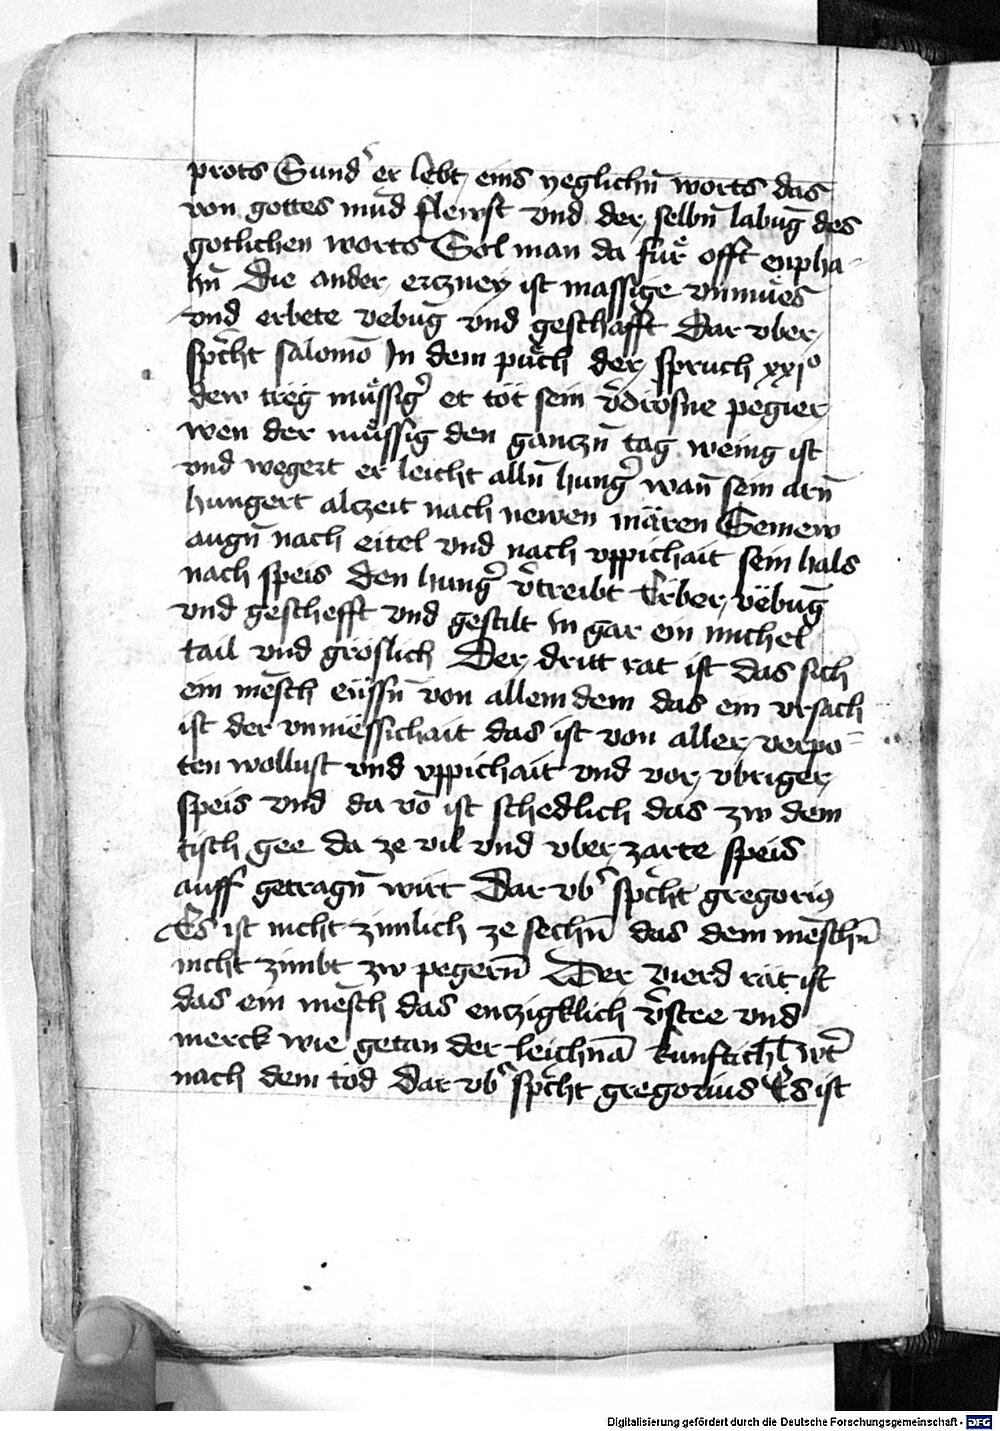 prots Sund' er lebt eins yeglichn̄ worts das
von gottes mūd flewst vnd der selbn̄ labūg des
gotlichen worts Sol man da fuͤr offt enpha-
hn̄ Die ander erczney ist massige vnmuͤes
vnd erbete vebūg vnd geschafft Dar vber
sp̄cht salomō In dem puͤch der spruch xxjͦ
dew treg muͤssig' et töt sein v̄drosne pegier
wen der muͤssig den ganczn̄ tag weinig ist
vnd wegert er leicht alln̄ hung' wan̄ sein orn̄
hungert alczeit nach newen mären Seinew
augn̄ nach eitel vnd nach vppichait sein hals
nach speis den hung' v̄treibt Erber vëbūg
vnd geschefft vnd gestilt in gar ein michel
tail vnd gröslich Der dritt rat ist das sich
ein mēsch eüssn̄ von allem dem das ein vrsach
ist der vnmëssichait das ist von aller verpo-
ten wollust vnd vppichait vnd vor vbriger
speis vnd da vō ist schedlich das zw dem
tisch gee da ze vil vnd vber zarte speis
auff getragn̄ wirt Dar vb' sp̄cht gregorius
Es ist nicht zimlich ze sechn̄ das dem mēschn̄
nicht zimbt zw pegern̄ Der vierd rät ist
das ein mēsch das enczigklich v̄stee vnd
merck wie getan der leichnā kunfticl wt'
nach dem tod Dar vb' sp̄cht gregorius Es ist
Digitalisierung gefördert durch die Deutsche Forschungsgemeinschaft - DFG